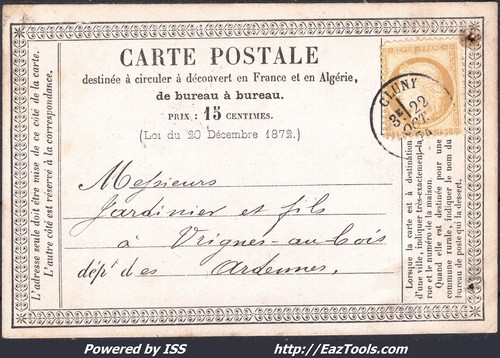 CARTE POSTALE
destinée à circuler à découvert en France et en Algérie,
de bureau à bureau.
PRIX : 15 CENTIMES.
(Loi du 20 Décembre 1872.)
CLUNY
22
OCT.
74
L'adresse seule doit être mise de ce côté de la carte.
L'autre côté est réservé à la correspondance.
Messieurs
Jardinier et fils
à Vrignes-au-bois
dépt des Ardennes.
Lorsque la carte est à destination
d'une ville, indiquer très-exactement la
rue et le numéro de la maison.
Quand elle est destinée pour une
commune rurale, indiquer le nom du
bureau de poste qui la dessert.
Powered by ISS
http://EazTools.com